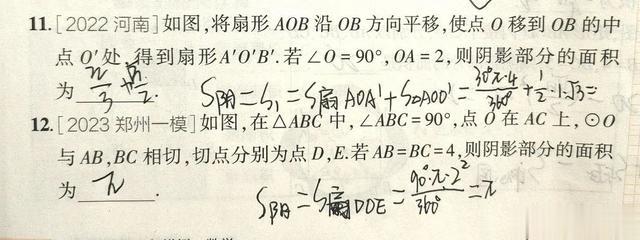 11. [2022 河南] 如图,将扇形 AOB 沿 OB 方向平移,使点 O 移到 OB 的中
点 O′处,得到扇形 A′O′B′.若∠O=90°,OA=2,则阴影部分的面积
为 π/3+√3/2. S阴=S₁=S扇AOA′+S△AOO′=30°π·4/360°+1/2·1·√3=
12. [2023 郑州一模] 如图,在△ABC 中,∠ABC=90°,点 O 在 AC 上,⊙O
与 AB,BC 相切,切点分别为点 D,E.若 AB=BC=4,则阴影部分的面积
为 π . S阴=S扇DOE=90°·π·2²/360°=π